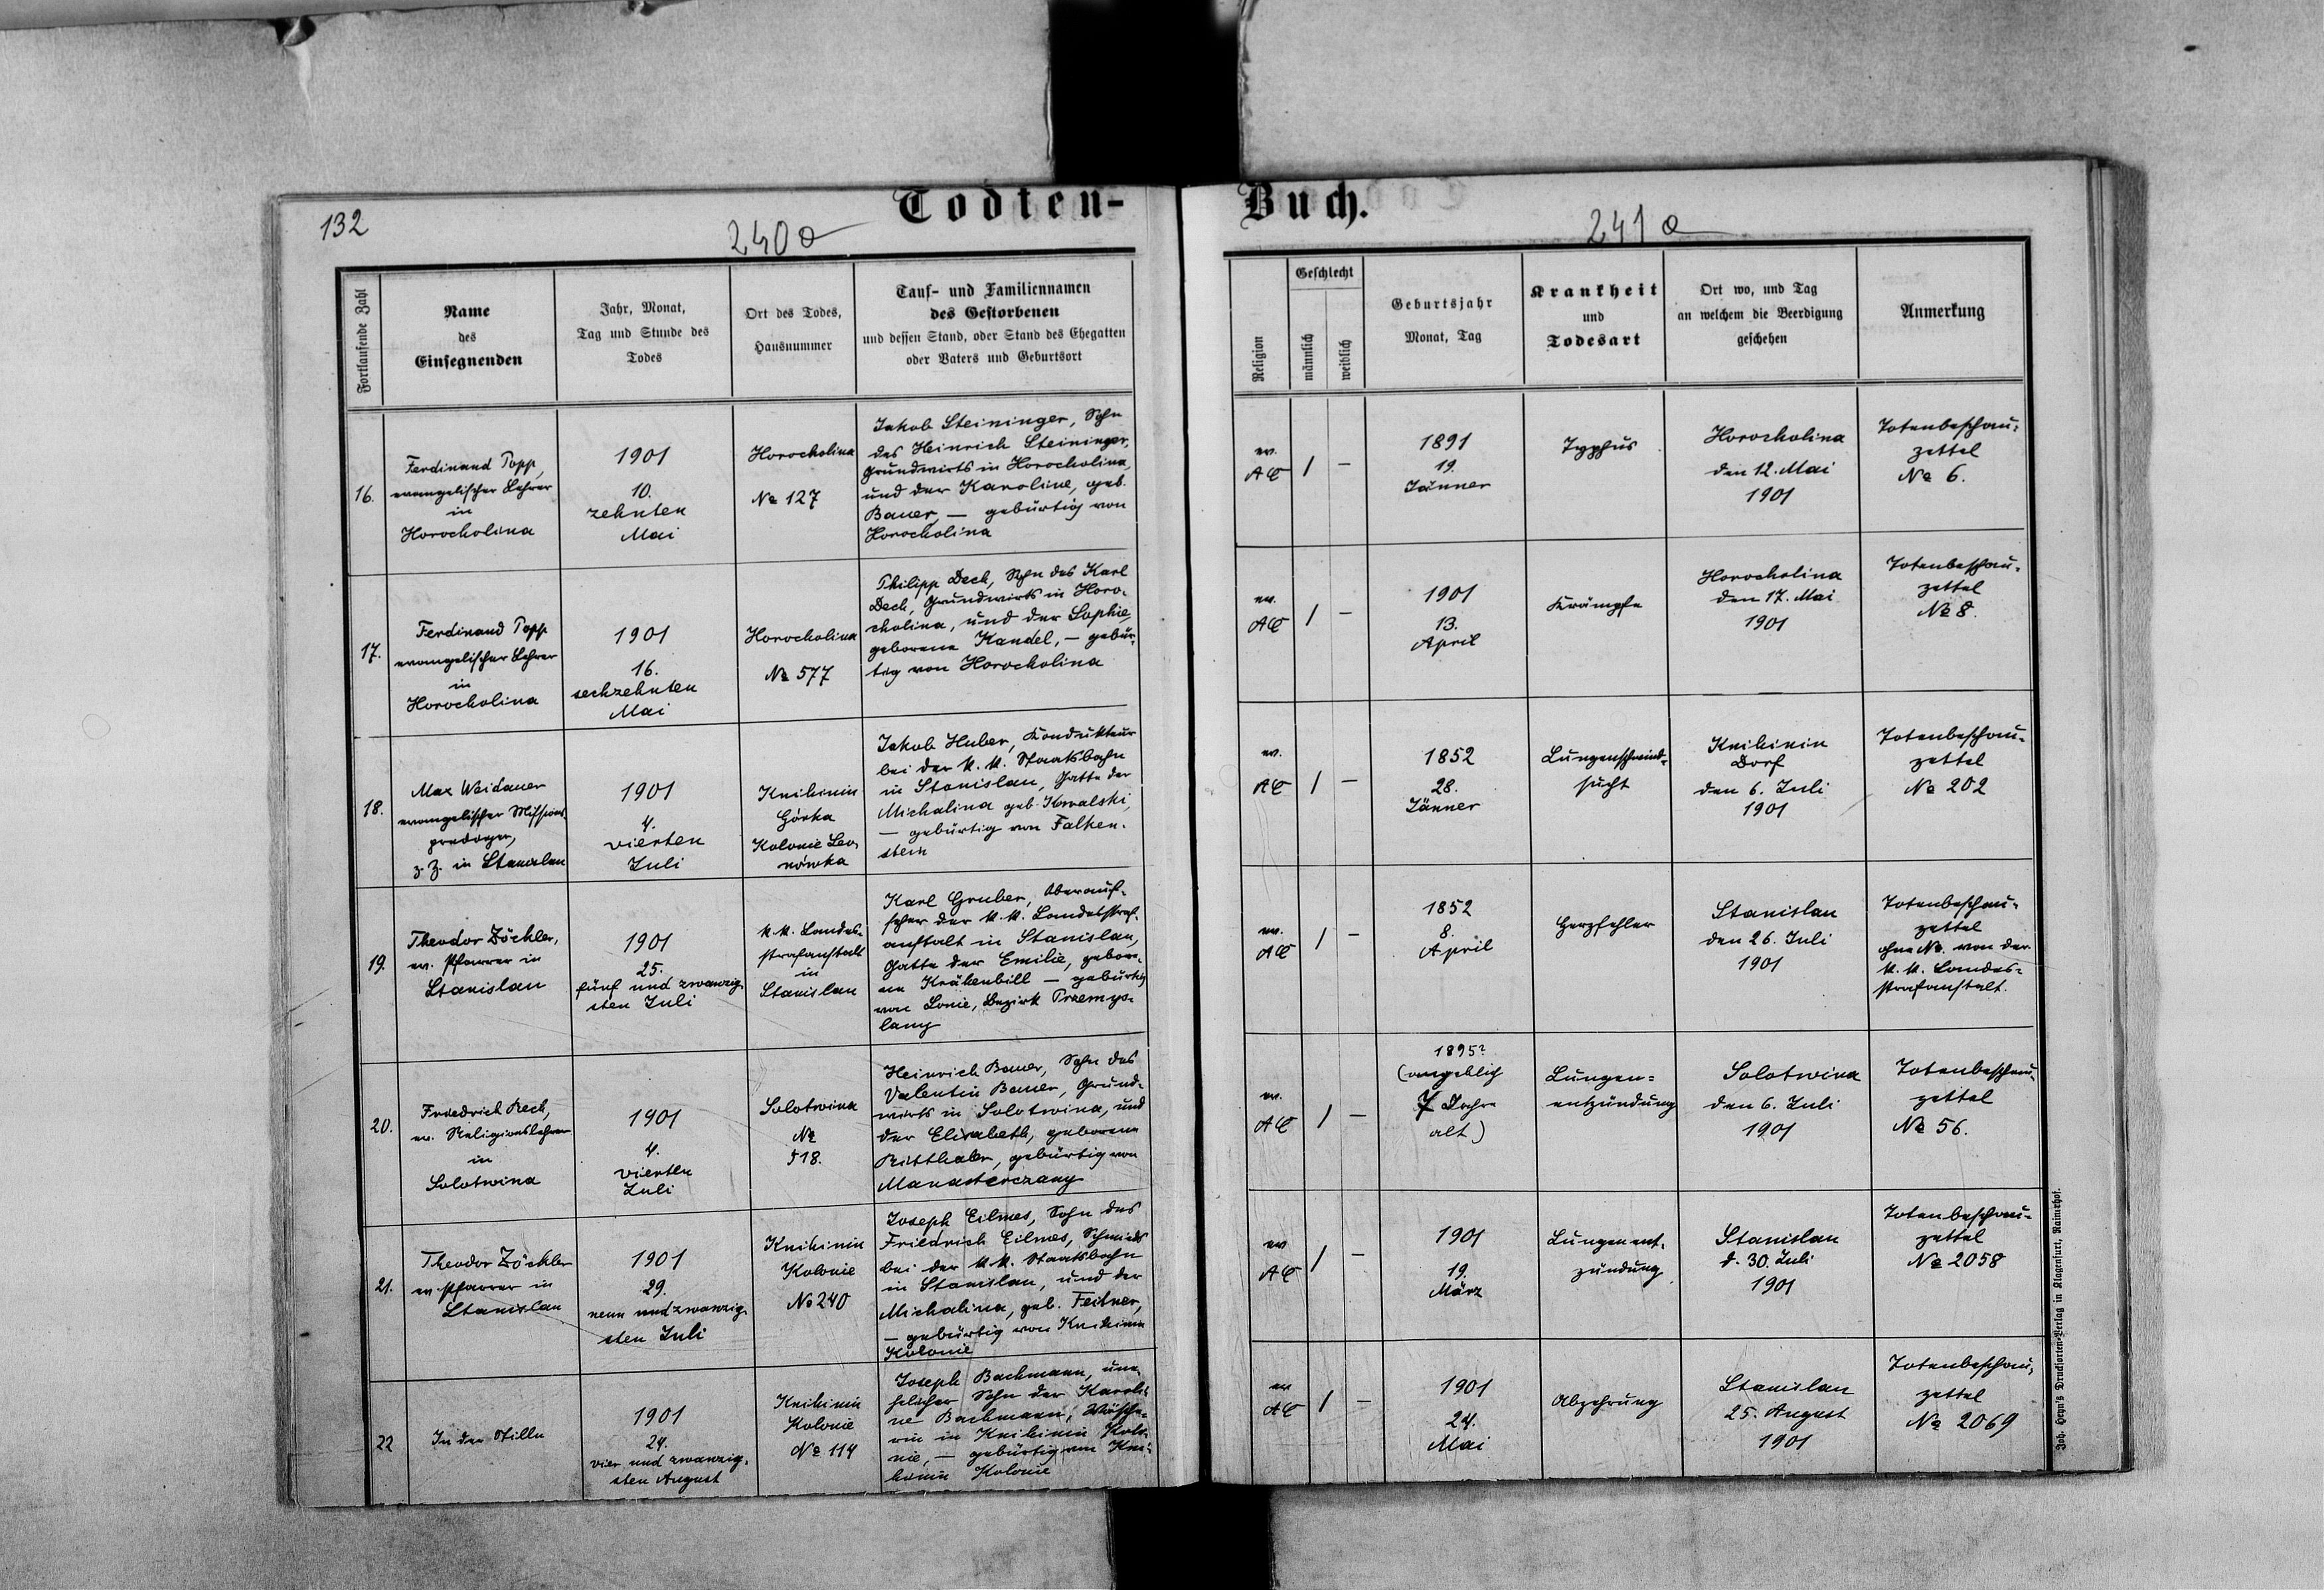 132
Todten-
Buch.
240a
241a
Fortlaufende Zahl
Name
des
Einsegnenden
Jahr, Monat,
Tag und Stunde des
Todes
Ort des Todes,
Hausnummer
Tauf- und Familiennamen
des Gestorbenen
und dessen Stand, oder Stand des Ehegatten
oder Vaters und Geburtsort
Religion
Geschlecht
männlich
weiblich
Geburtsjahr
Monat, Tag
Krankheit
und
Todesart
Ort wo, und Tag
an welchem die Beerdigung
geschehen
Anmerkung
16.
Ferdinand Popp,
evangelischer Lehrer
in
Horocholina
1901
10.
zehnten
Mai
Horocholina
No 127
Jakob Steininger, Sohn
des Heinrich Steininger,
Grundwirts in Horocholina,
und der Karoline, geb.
Bauer, — gebürtig von
Horocholina
ev.
AC
1
—
1891
19.
Jänner
Typhus
Horocholina
den 12. Mai
1901
Totenbeschau-
zettel
No 6.
17.
Ferdinand Popp
evangelischer Lehrer
in
Horocholina
1901
16.
sechzehnten
Mai
Horocholina
No 577
Philipp Dech, Sohn des Karl
Dech, Grundwirts in Horo-
cholina, und der Sophie,
geborene Kandel, — gebür-
tig von Horocholina
ev.
AC
1
—
1901
13.
April
Krämpfe
Horocholina
den 17. Mai
1901
Totenbeschau-
zettel
No 8.
18.
Max Weidauer
evangelischer Missions-
prediger,
z. Z. in Stanislau
1901
4.
vierten
Juli
Knihinin
Górka
Kolonie Leo-
nówka
Jakob Huber, Kondukteur
bei der k. k. Staatsbahn
in Stanislau, Gatte der
Michalina geb. Kowalski,
— gebürtig von Falken-
stein
ev.
AC
1
—
1852
28.
Jänner
Lungenschwind-
sucht
Knihinin
Dorf
den 6. Juli
1901
Totenbeschau-
zettel
No 202
19.
Theodor Zöckler,
ev. Pfarrer in
Stanislau
1901
25.
fünf und zwanzig-
sten Juli
k. k. Landes-
strafanstalt
in
Stanislau
Karl Gruber, Oberauf-
seher der k. k. Landesstraf-
anstalt in Stanislau,
Gatte der Emilie, gebore-
ne Krähenbill — gebürtig
von Lonie, Bezirk Przemys-
lany
ev.
AC
1
—
1852
8.
April
Herzfehler
Stanislau
den 26. Juli
1901
Totenbeschau-
zettel
ohne No. von der
k. k. Landes-
strafanstalt.
20.
Friedrich Rech,
ev. Religionslehrer
in
Solotwina
1901
4.
vierten
Juli
Solotwina
No
518.
Heinrich Bauer, Sohn des
Valentin Bauer, Grund-
wirts in Solotwina, und
der Elisabeth, geborene
Ritthaler, gebürtig von
Manasterczany
ev.
AC
1
—
1895?
(angeblich
7 Jahre
alt)
Lungen-
entzündung
Solotwina
den 6. Juli
1901
Totenbeschau-
zettel
No 56.
21.
Theodor Zöckler
ev. Pfarrer in
Stanislau
1901
29.
neun und zwanzig-
sten Juli
Knihinin
Kolonie
No 240
Joseph Eilmes, Sohn des
Friedrich Eilmes, Schmieds
bei der k. k. Staatsbahn
in Stanislau, und der
Michalina, geb. Feitner,
— gebürtig von Knihinin
Kolonie
ev
AC
1
—
1901
19.
März
Lungenent-
zündung
Stanislau
d. 30. Juli
1901
Totenbeschau-
zettel
No 2058
22
In der Stille
1901
24.
vier und zwanzig-
sten August
Knihinin
Kolonie
No 114
Joseph Bachmann, une-
helicher Sohn der Karoli-
ne Bachmann, Wäsche-
rin in Knihinin Kolo-
nie, — gebürtig von Kni-
hinin Kolonie
ev
AC
1
—
1901
24.
Mai
Abzehrung
Stanislau
25. August
1901
Totenbeschau-
zettel
No 2069
Joh. Heyn's Drucksorten-Verlag in Klagenfurt, Rainerhof.